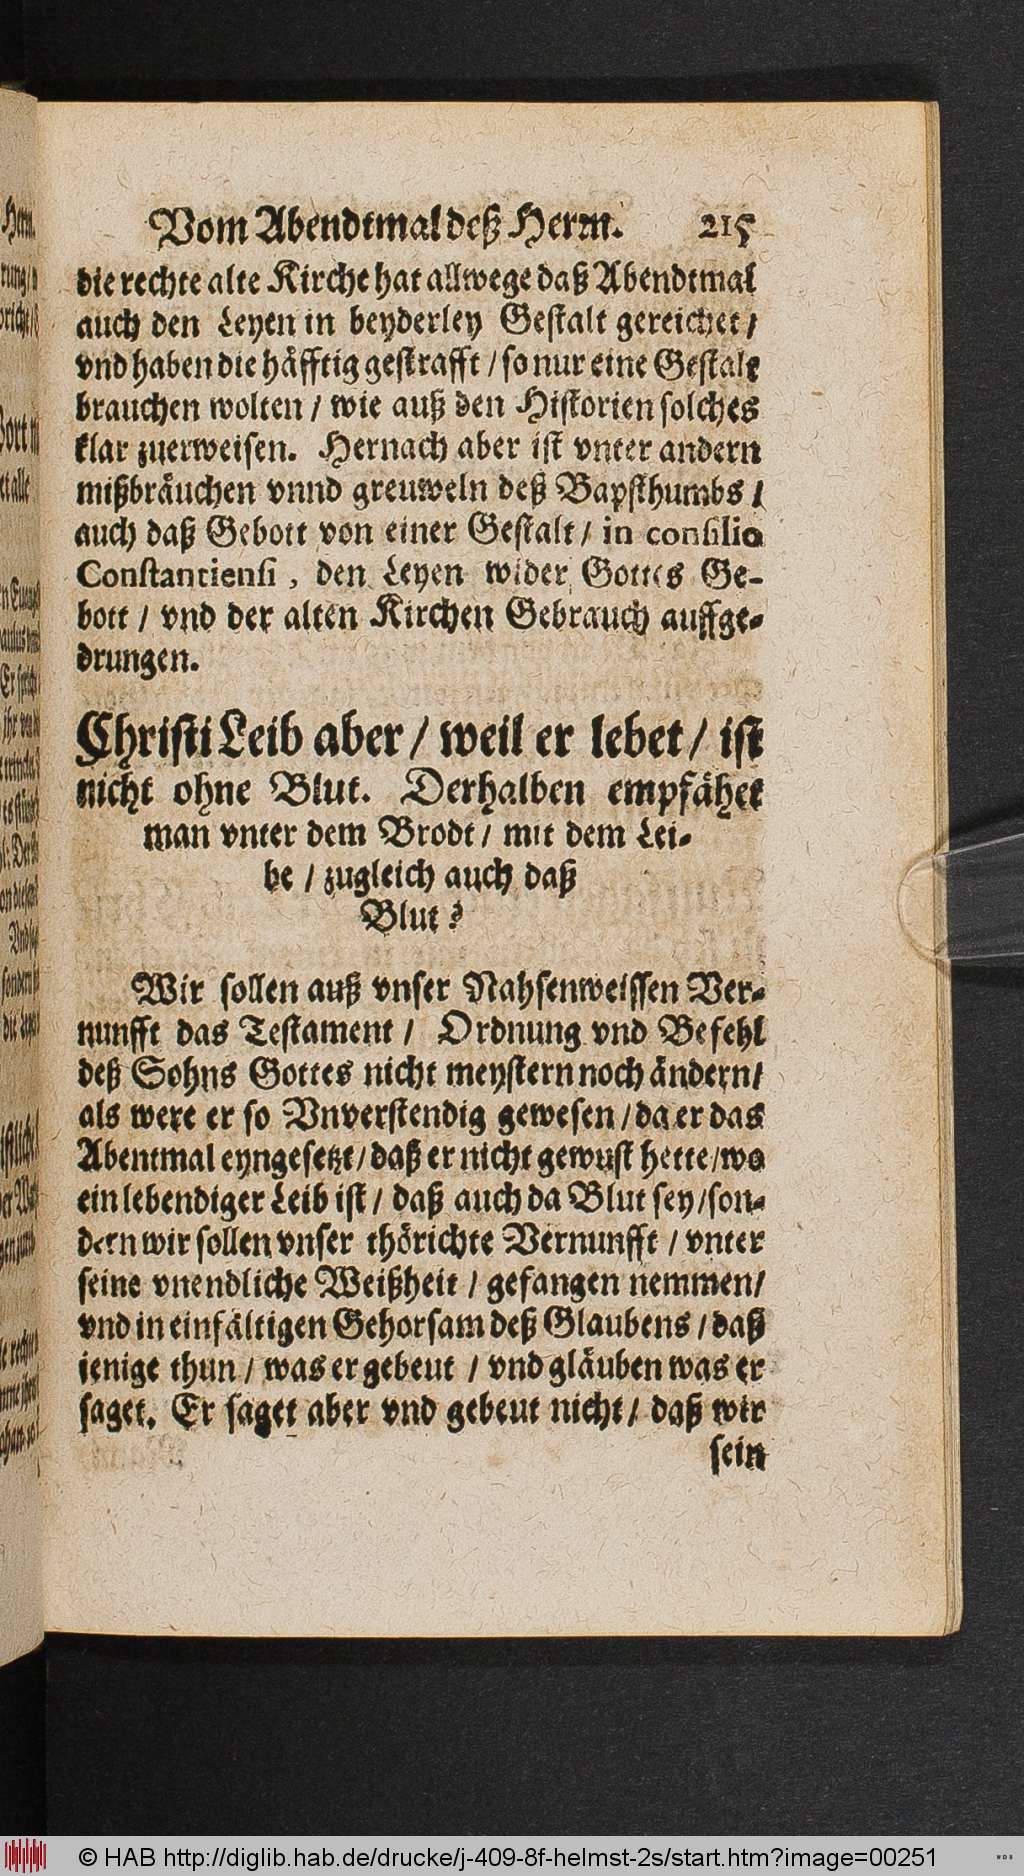 Vom Abendtmal deß Herrn. 215
die rechte alte Kirche hat allwege daß Abendtmal
auch den Leyen in beyderley Gestalt gereichet /
vnd haben die häfftig gestrafft / so nur eine Gestalt
brauchen wolten / wie auß den Historien solches
klar zuerweisen. Hernach aber ist vnter andern
mißbräuchen vnnd greuweln deß Bapsthumbs /
auch daß Gebott von einer Gestalt / in consilio
Constantiensi, den Leyen wider Gottes Ge-
bott / vnd der alten Kirchen Gebrauch auffge-
drungen.
Christi Leib aber / weil er lebet / ist
nicht ohne Blut. Derhalben empfähet
man vnter dem Brodt / mit dem Lei-
be / zugleich auch daß
Blut?
Wir sollen auß vnser Nahsenweissen Ver-
nunfft das Testament / Ordnung vnd Befehl
deß Sohns Gottes nicht meystern noch ändern /
als were er so Vnverstendig gewesen / da er das
Abentmal eyngesetzt / daß er nicht gewust hette / wo
ein lebendiger Leib ist / daß auch da Blut sey / son-
dern wir sollen vnser thörichte Vernunfft / vnter
seine vnendliche Weißheit / gefangen nemmen /
vnd in einfältigen Gehorsam deß Glaubens / daß
jenige thun / was er gebeut / vnd gläuben was er
saget. Er saget aber vnd gebeut nicht / daß wir
sein
© HAB http://diglib.hab.de/drucke/j-409-8f-helmst-2s/start.htm?image=00251